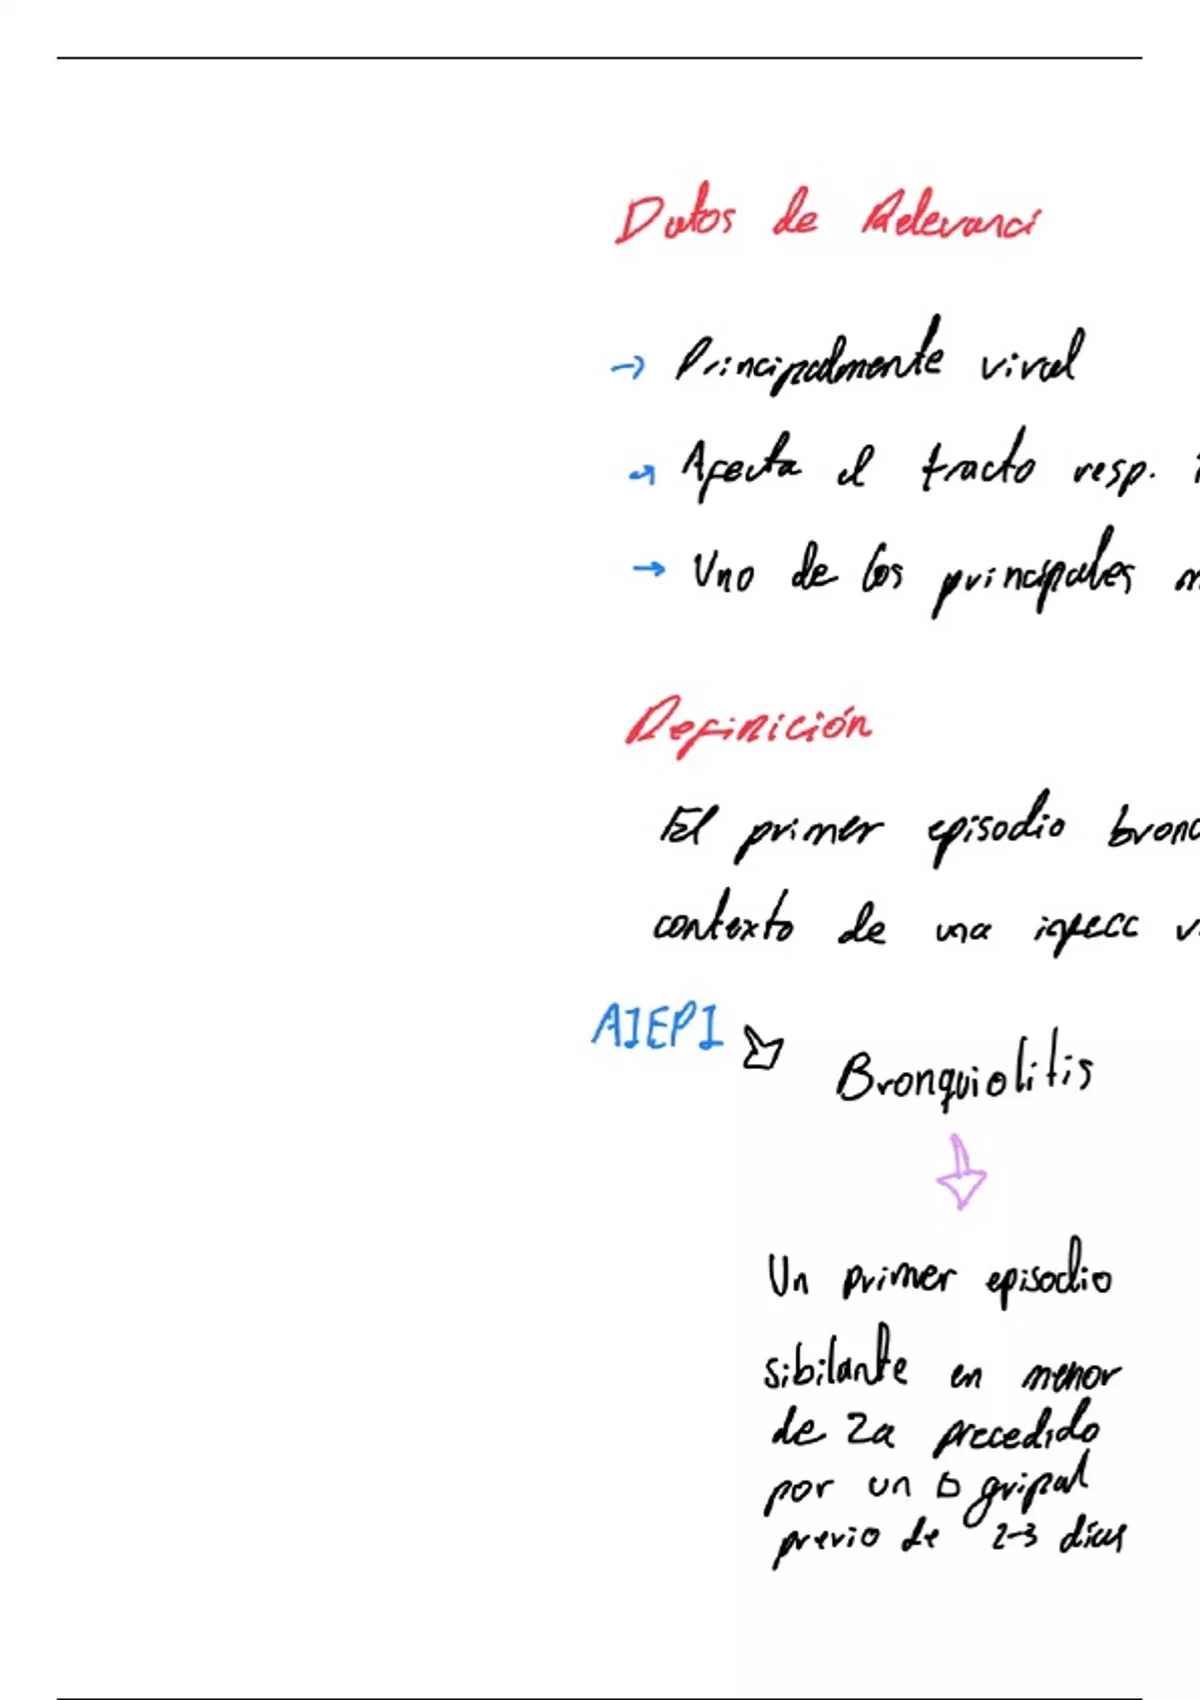 Datos de Relevanci
→ Principalmente viral
→ Afecta el tracto resp. i
→ Uno de los principales m
Definición
El primer episodio bronq
contexto de una infecc v
AIEPI
Bronquiolitis
Un primer episodio
sibilante en menor
de 2a precedido
por un □ gripal
previo de 2-3 días